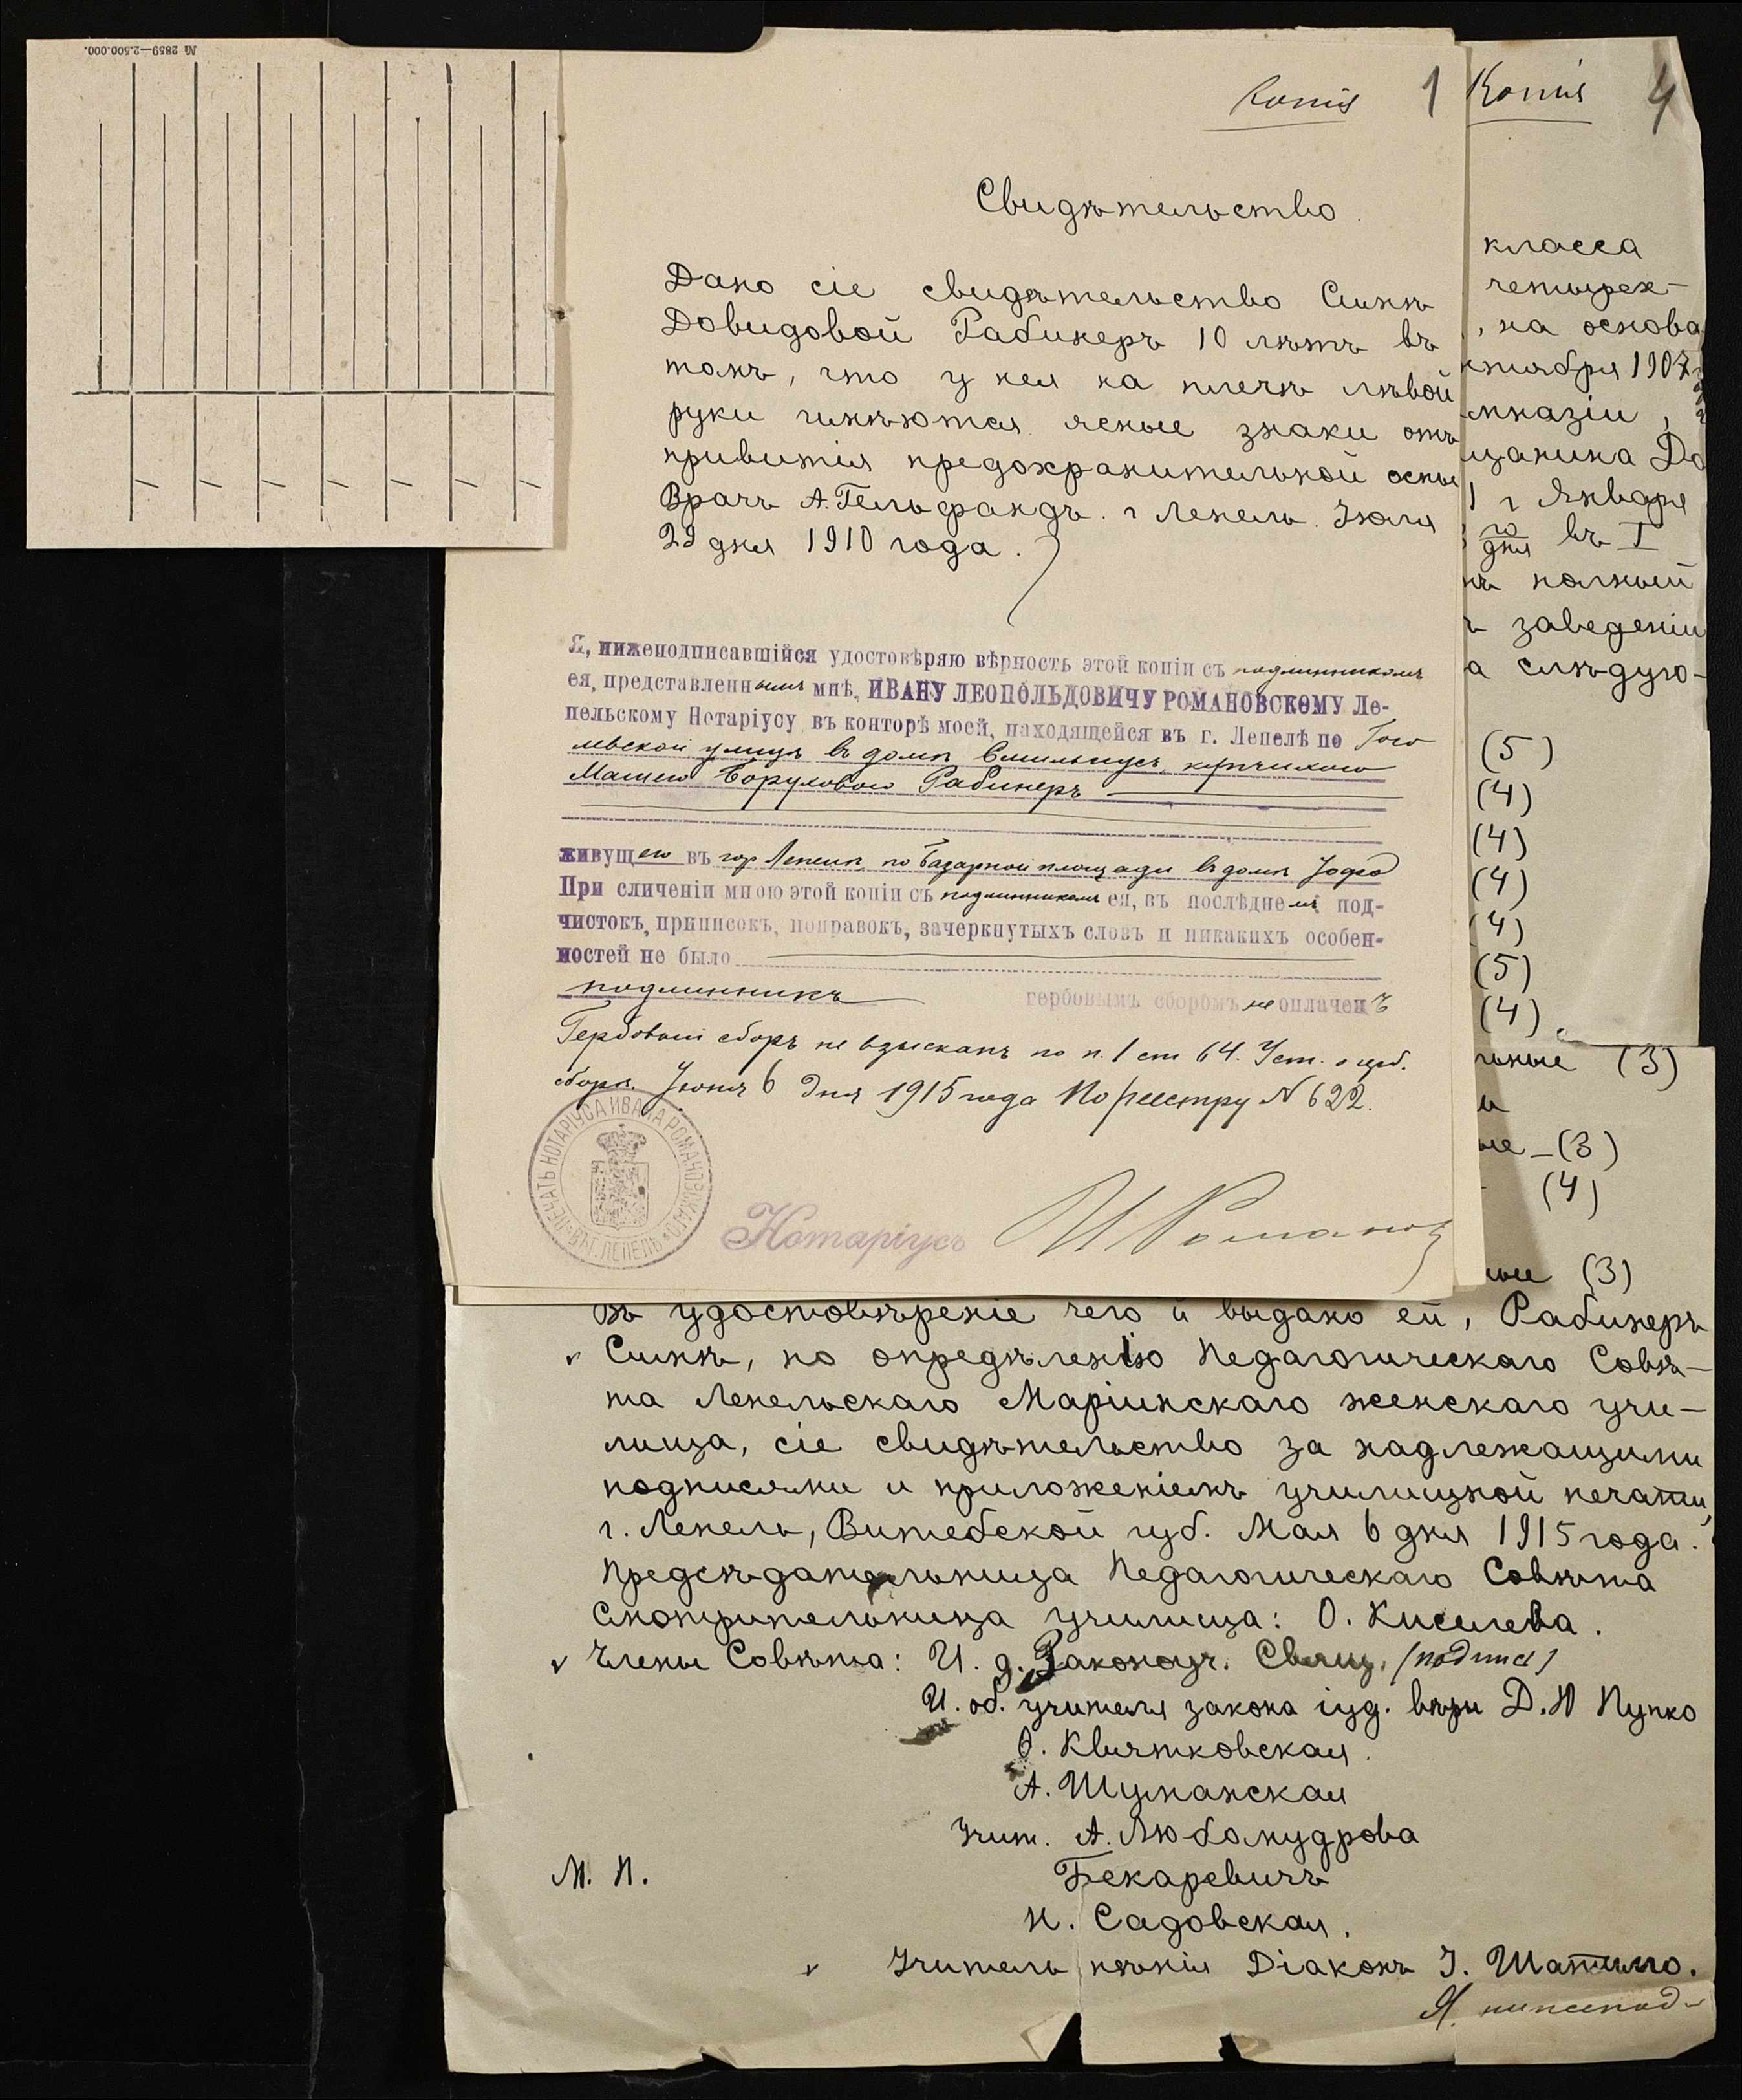 № 2859—2.500.000.
Копія 1
Свидѣтельство.
Дано сіе свидѣтельство Симѣ
Довидовой Рабинеръ 10 лѣтъ въ
томъ, что у нея на плечѣ лѣвой
руки имѣются ясные знаки отъ
привитія предохранительной оспы
Врачъ А. Гельфандъ. г Лепель. Іюля
29 дня 1910 года.
Я, нижеподписавшійся удостовѣряю вѣрность этой копіи съ подлинникомъ
ея, представленнымъ мнѣ, ИВАНУ ЛЕОПОЛЬДОВИЧУ РОМАНОВСКОМУ Ле-
пельскому Нотаріусу, въ конторѣ моей, находящейся въ г. Лепелѣ по Гого
левской улицѣ въ домѣ купчихою
Рабинеръ
живущею въ гор Лепелѣ, по Базарной площади въ домѣ
При сличеніи мною этой копіи съ подлинникомъ ея, въ послѣднемъ под-
чистокъ, приписокъ, поправокъ, зачеркнутыхъ словъ и никакихъ особен-
ностей не было
подлинникъ гербовымъ сборомъ не оплаченъ
Гербовый сборъ не взысканъ по п. 1 ст 64. Уст. о герб.
сборѣ. Іюня 6 дня 1915 года По реестру N 622.
ПЕЧАТЬ НОТАРІУСА ИВАНА РОМАНОВСКАГО ВЪ Г. ЛЕПЕЛЬ
Нотаріусъ И Романов
Копія 4
класса
четырех-
, на основа
ктября 1907
имназіи,
щанина До
1 г Января
го дня въ I
нъ полный
ъ заведеніи
а слѣдую-
(5)
(4)
(4)
(4)
(4)
(5)
(4).
льные (3)
ы
ые - (3)
- (4)
ные (3)
Въ удостовѣреніе чего и выдано ей, Рабинеръ
Симѣ, по опредѣленію Педагогическаго Совѣ-
та Лепельскаго Маріинскаго женскаго учи-
лища, сіе свидѣтельство за надлежащими
подписями и приложеніемъ училищной печати,
г. Лепель, Витебской губ. Мая 6 дня 1915 года.
Предсѣдательница Педагогическаго Совѣта
Смотрительница училища: О. Киселева.
Члены Совѣта: И. д. Законоуч. Свящ. (подпись)
И. об. учителя закона іуд. вѣры Д. Ю Пупко
О. Квятковская.
А. Шуманская
Учит. А. Любомудрова
М. П. Бекаревичъ
Н. Садовская.
Учитель пѣнія Діаконъ І. Шатилло.
Я, нижепод-